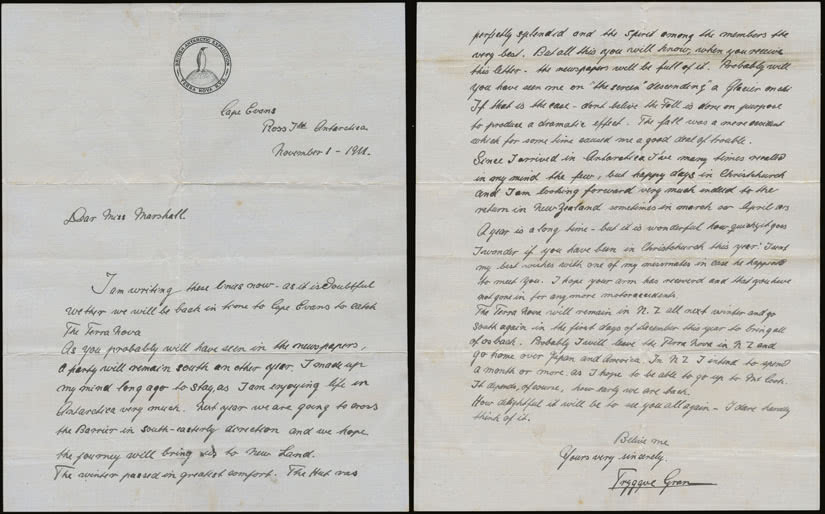 BRITISH ANTARCTIC EXPEDITION
TERRA NOVA R.Y.S.
Cape Evans
Ross Isld Antarctica
November 1 - 1911.
Dear Miss Marshall
I am writing these lines now - as it is Doubtful
wether we will be back in time to Cape Evans to catch
The Terra Nova
As you probably will have seen in the newspapers,
a party will remain south an other year. I made up
my mind long ago to stay, as I am enjoying life in
Antarctica very much. Next year we are going to cross
the Barrier in south-easterly direction and we hope
the journey will bring us to New Land.
The winter passed in greatest comfort. The Hut was
perfectly splendid and the spirit among the members the
very best. But all this you will know, when you receive
this letter - the newspapers will be full of it. Probably will
you have seen me on "the screen" descending a Glacier on ski
If that is the case - dont believe the Fall is done on purpose
to produce a dramatic effect. The fall was a mere accident
which for some time caused me a good deal of trouble.
Since I arrived in Antarctica I've many times recalled
in my mind the few, but happy days in Christchurch
and I am looking forward very much indeed to the
return in New Zealand sometimes in march or April 1913
A year is a long time - but it is wonderful how quickly it goes
I wonder if you have been in Christchurch this year. I sent
my best wishes with one of my messmates in case he happened
to meet you. I hope your arm has recovered and that you have
not gone in for any more motoraccidents
The Terra Nova will remain in N.Z all next winter and go
south again in the first days of december this year to bring all
of us back. Probably I will leave the Terra Nova in N.Z and
go home over Japan and America. In N.Z I intend to spend
a month or more as I hope to be able to go up to Mt Cook.
It depends, of course, how early we are back.
How delightful it will be to see you all again - I dare hardly
think of it.
Believe me
Yours very sincerely.
Tryggve Gran